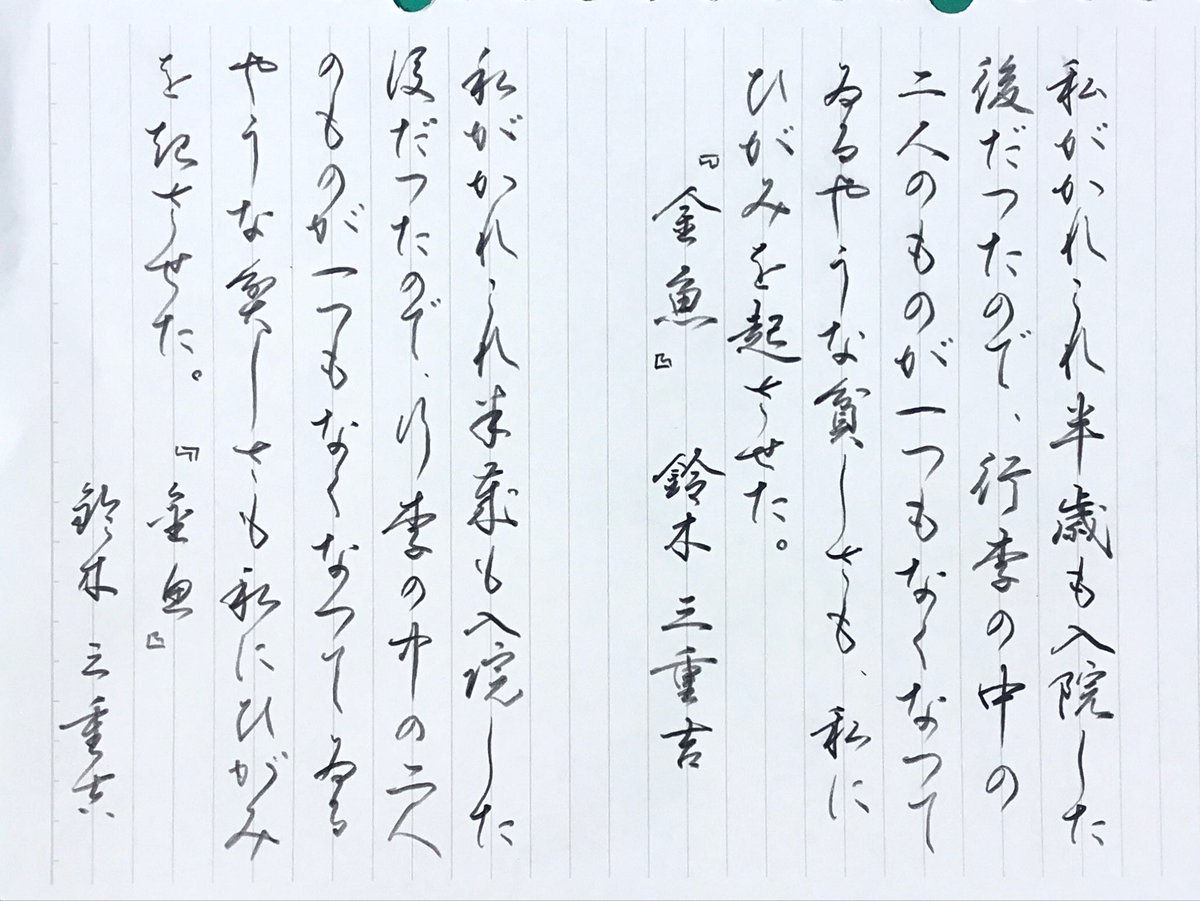 私がかれこれ半歳も入院した
後だつたので、行李の中の
二人のものが一つもなくなつて
ゐるやうな貧しさも、私に
ひがみを起させた。
『金魚』 鈴木三重吉
私がかれこれ半歳も入院した
後だつたので、行李の中の二人
のものが一つもなくなつてゐる
やうな貧しさも私にひがみ
を起させた。 『金魚』
鈴木三重吉